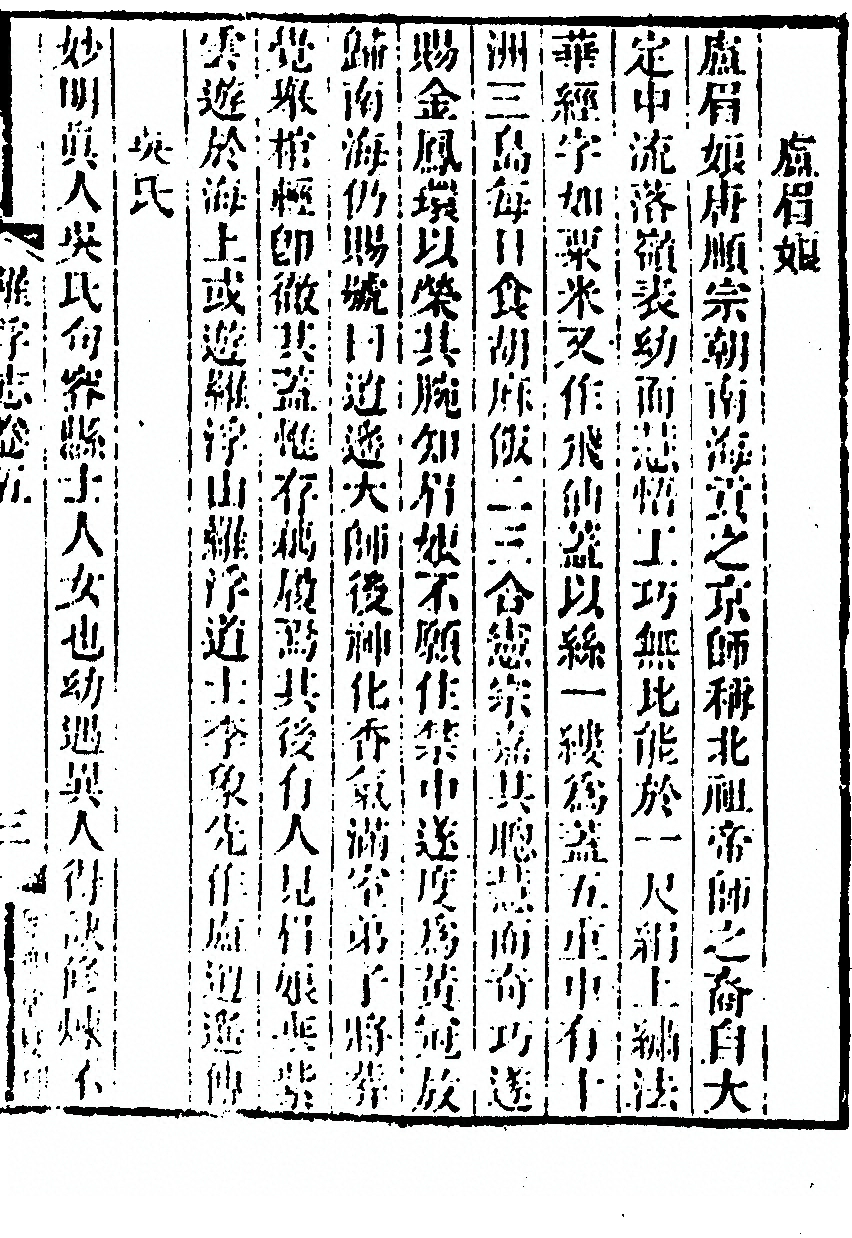 盧眉娘
盧眉娘唐順宗朝南海貢之京師稱北祖帝師之裔自大
定中流落嶺表幼而慧悟工巧無比能於一尺絹上繡法
華經字如粟米又作飛仙蓋以絲一縷為蓋五重中有十
洲三島每日食胡麻飯二三合憲宗嘉其聰慧而奇巧遂
賜金鳳環以榮其腕知眉娘不願住禁中遂度為黃冠放
歸南海仍賜號曰逍遙大師後神化香氣滿室弟子將葬
覺舉棺輕即徹其蓋惟存藕屨焉其後有人見眉娘乘紫
雲遊於海上或遊羅浮山羅浮道士李象先作盧逍遙傳
吳氏
妙明眞人吳氏句容縣士人女也幼遇異人得訣修煉不
羅浮志卷五
三